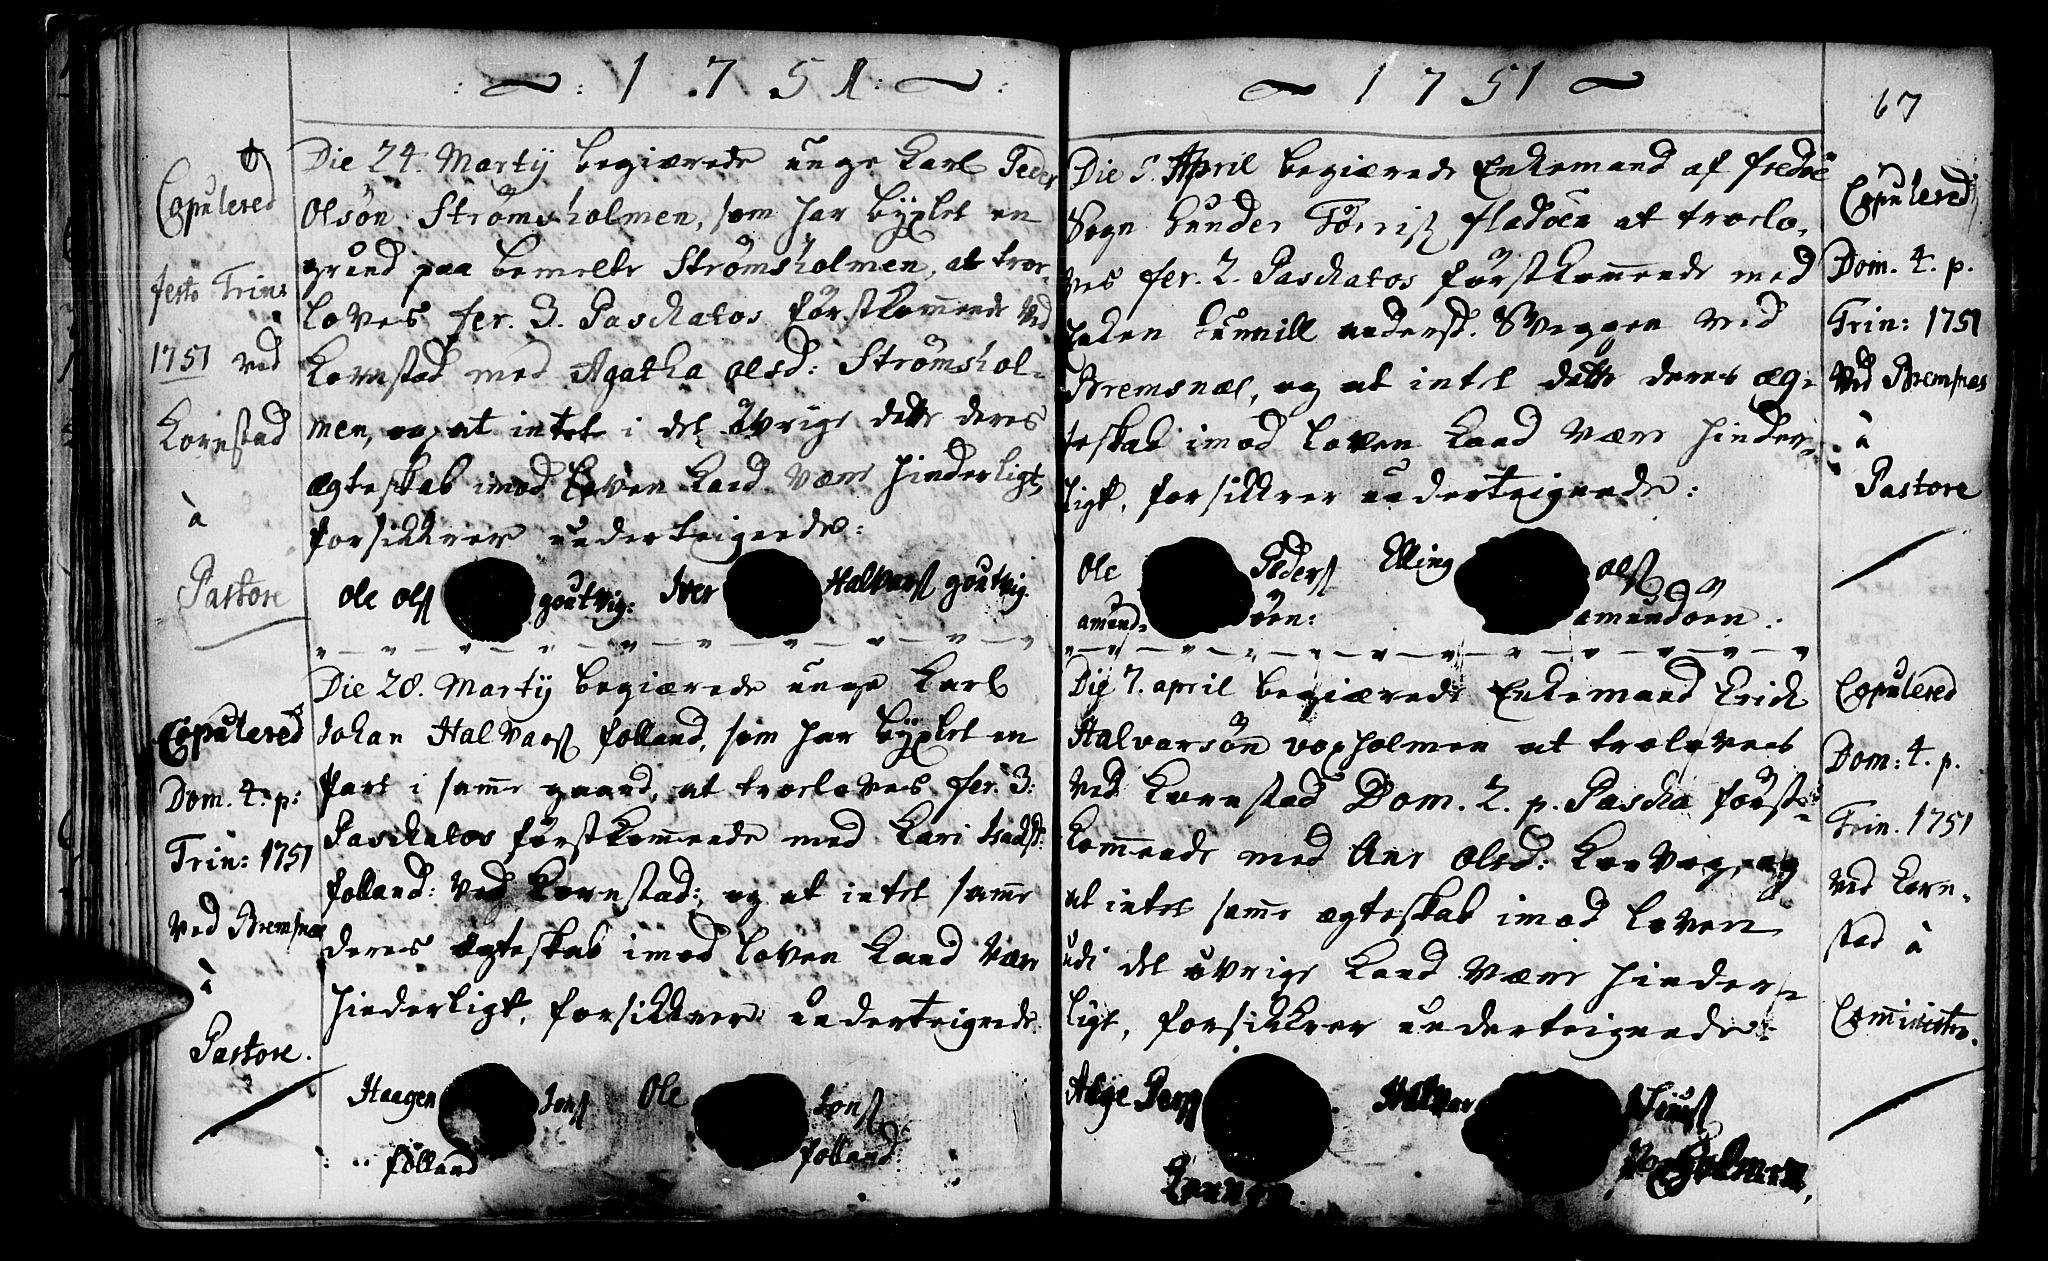 1751
Copulered
festo Trin:
1751 ved
Kornstad
à
Pastore
Die 24. Martij begiærede unge Karl Peder
Olsøn Strømsholmen, som har byxlet en
grund paa bemelte Strømsholmen, at troe-
loves fer. 3. Paschatos førstkommende ved
Kornstad med Agatha Olsd: Strømshol-
men, og at intet i det øvrige dette deres
ægteskab imod Loven kand være hinderligt,
forsikkrer underteignede:
Ole Olsß goutvig: Iver Halvorsß goutvig
Copulered
Dom. 4. p:
Trin: 1751
ved Bremsnæs
à
Pastore.
Die 28. Martij begiærede unge Karl
Johan Halvarsß folland, som har byxlet en
part i samme gaard, at troeloves fer. 3:
Paschatos førstkommende med Kari Isachsd:
folland: ved Kornstad: og at intet samme
deres ægteskab imod Loven kand være
hinderligt, forsikkrer underteignede.
Haagen Jonsß Ole Jonsß
folland folland:
1751
67
Die 5. April begiærede Enkemand af fredøe
Sogn Gunder Tørrisß fladøen at troelo-
ves fer. 2. Paschatos førstkommende med
Enken Gunnill andersd. Sveggen ved
Bremsnæs, og at intet dette deres æg-
teskab imod Loven kand være hinder-
ligt, forsikkrer underteignede:
Ole Pedersß Elling Olsß
amund- øen: amundøen.
Copulered
Dom. 4. p.
Trin: 1751
ved Bremsnæs
à
Pastore
Die 7. april begiærede Enkemand Erich
Halvarsøn voxholmen at troeloves
ved Kornstad Dom. 2. p. Pascha først-
kommende med Ane Olsd: , og
at intet samme ægteskab imod Loven
udi det øvrige kand være hinder-
ligt, forsikkrer underteignede:
Halvor
Copulered
Dom: 4. p.
Trin. 1751
ved Korn-
stad à
Comministro.